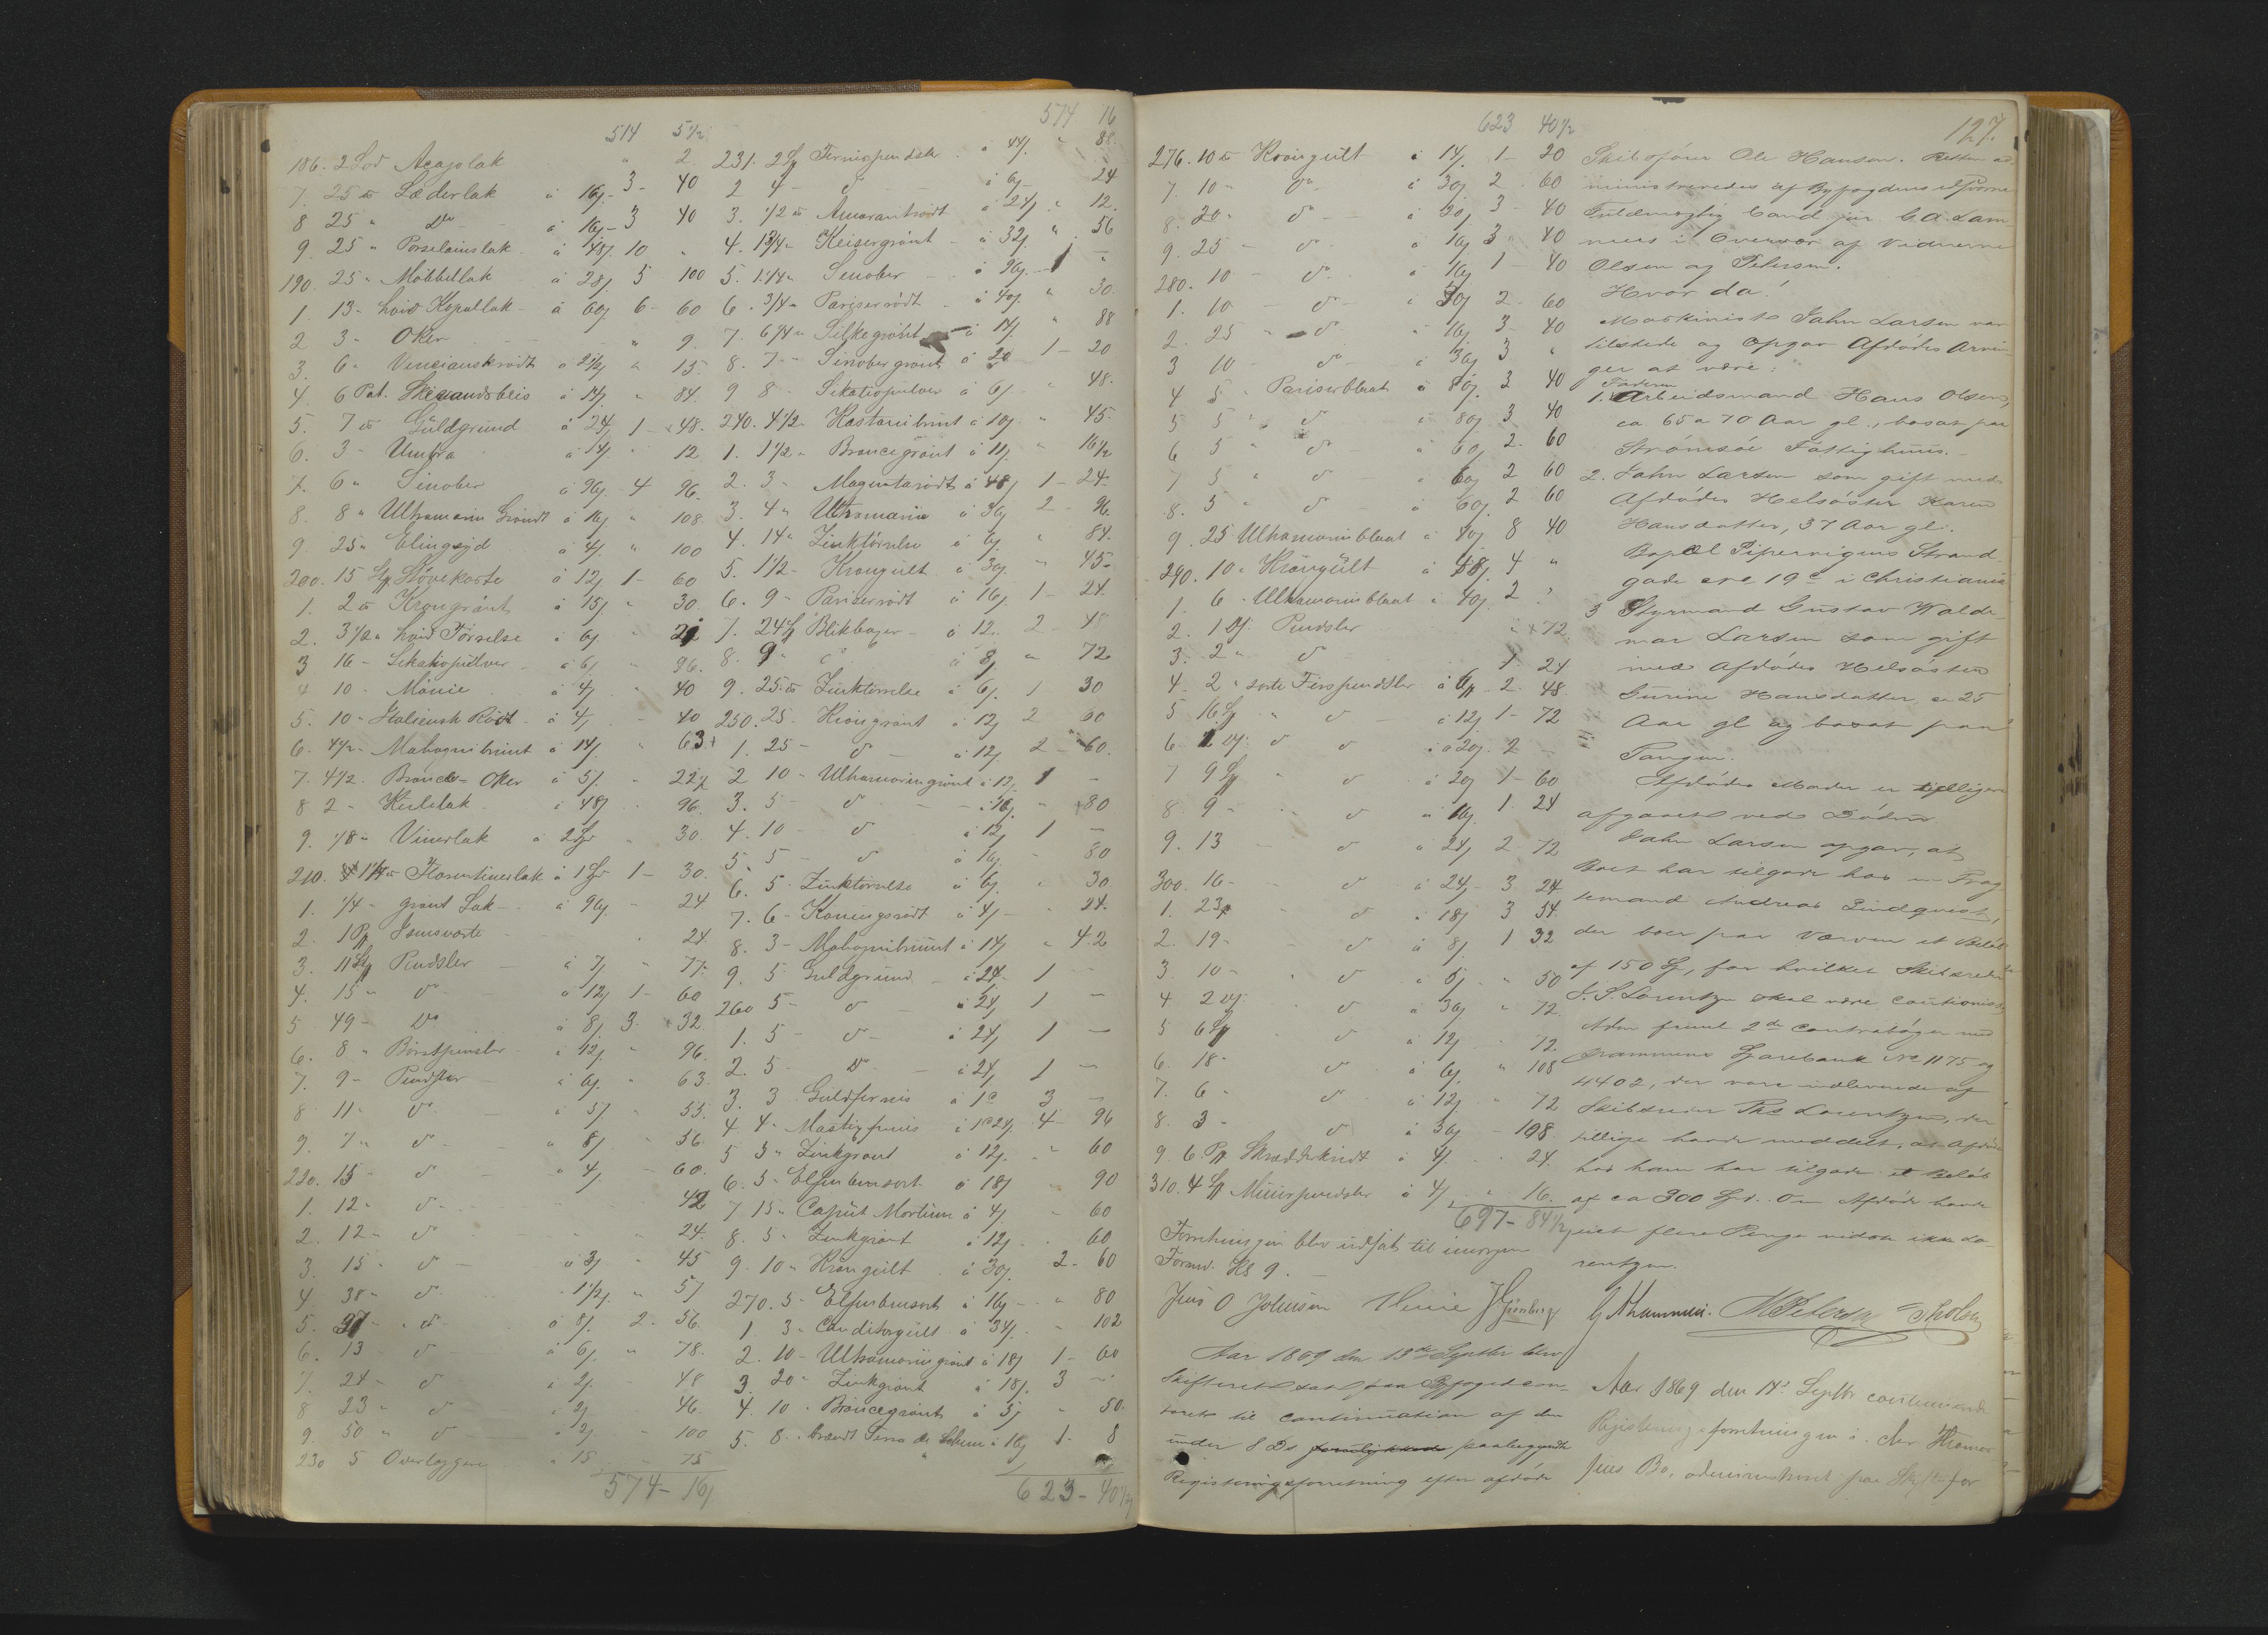 514 5½
186. 2 Lod Acajolak " 2
7. 25 " Læderlak à 16/ 3 - 40
8 25 " Do - à 16/ - 3 40
9. 25 " Porselainslak à 48/ 10 "
190. 25 " Møbbellak à 28/ 5 100
1. 13 - hvid Kopallak - à 60/ 6 - 60
2 3 - Oker - " 9.
3. 6 " Venetianskrødt à 2½/ " 15
4. 6 Pak. à 14/ " 84.
5. 7 " Guldgrund à 24/ 1 - 48.
6. 3 - Umbra à 4/ " 12
7. 6 " Sinober à 96/ - 4 96.
8. 8 " Ultramarin Grøndt à 16/ " 108.
9. 25 " à 4/ " 100
200. 15 St Støvekoste à 12/ 1 - 60
1. 2 " Krongrønt à 15/ " 30.
2. 3½ " hvid Tørrelse à 6/ " 21
3 16 - Sikativpulver - à 6/ " 96.
4 10 - Mønie à 4/ " 40
5. 10 - Italiensk Rødt - à 4/ - 40
6. 4½ - Mahognibrunt à 14/ " 63
7. 4½ - Bronce - Oker à 5/ " 22½
8 2 - Kulelak à 48/ 96.
9. 1/8 " Vinerlak à 2 " 30.
210. 1¼ " Florentinerlak à 1 1 - 30.
1. ¼ - grønt Lak - à 96/ " 24
2. 1 24.
3. 11 St Pendsler - à 7/ " 77.
4. 15 " do - à 12/ 1 - 60
5 49 - Do à 8/ 3. 32.
6. 8 " Børstpensler à 12/ " 96.
7. 9 - Pendsler à 6/ " 63.
8 11 - do - à 5/ " 55.
9. 7 " do - à 8/ " 56
220. 15 - do - à 4/ - 60.
1. 12 - do - 42
2. 12 - do 24.
3. 15 - do - à 3/ " 45
4. 38 " do 1½/ " 57
5. - do - à 8/ 2. 56.
6. 13 - do à 6/ " 78.
7. 24 - do à 2/ - 48
8 23 " do à 2/ - 46.
9. 50 " do à 2/ 100
230 5 Overlæggere à 15 75
574 - 16/
574 16
231. 2 St Fernispendsler à 44/ " 88.
2 4 - do à 6/ - 24
3. ½ " Amarantrødt à 24/ " 12.
4. 1¾ " Keisergrønt - à 32/ " 56
5. 1¼ " Sinober - à 96/ - 1 "
6. ¾ " Pariserrødt - à 40/ " 30.
7. 6¼ " Silkegrønt - à 14/ " 88
8. 7 - Sinobergrønt à 20 1 - 20
9 8 - Sikativpulver à 6/ " 48.
240. 4½ - Kastaniebrunt à 10/ " 45.
1. 1½ " Broncegrønt à 11/ " 16½
2. 3 - Magentarødt à 48/ 1 - 24.
3. 4 " Ultramarin à 36/ 2 - 96.
4. 14 " Zinktørrelse à 6/ " 84.
5. 1½ - Krongult à 30/ " 45.
6. 9 - Pariserrødt à 16/ 1 - 24.
7. 24 St Blikbøger - à 12. 2 - 48
8. 9 - do à 8/ " 72
9. 25 " Zinktørrelse à 6/ 1 30
250. 25 - Krongrønt à 12/ 2 60
1. 25 - do - à 12/ 2 - 60.
2 10 - Ultramaringrønt à 12/ 1 -
3. 5 - do - - à 16/ " 80
4. 10 - do à 12/ 1 -
5. 5 - do à 16/ - 80
6. 5 - Zinktørrelse à 6/ " 30
7. 6 - Kaningsrødt à 4/ - " 24.
8. 3 - Mahognibrunt à 14/ " 42
9. 5 Guldgrund - à 24/ 1 -
260 5 - do à 24/ 1 -
1. 5 - do - à 24/ 1 -
2. 5 - Do - à 24/ 1 -
3. 3 - Guldfernis à 1 3 -
4 4 " Mastigfernis à 4 - 96
5 5 " Zinkgrønt à 12/ " 60
6. 5 - Elfenbensort à 18/ " 90
7. 15 " Caput Mortum à 4/ - 60
8. 5 - Zinkgrønt à 12/ . 60
9. 10 " Krongult à 30/ 2 - 60
270. 5 - Elfenbensort à 16/ - " 80
1. 3 - Conditorgult à 34/ " 102
2. 10 - Ultramaringrønt à 18/ 1 - 60
3. 20 - Zinkgrønt à 18/ 3 -
4. 10 - Broncegrønt à 5/ " 50.
5. 8. brændt Terra de à 16/ 1 - 8
623 - 40½
623 40½
276. 10 " Krongult à 14/ 1 - 20
7. 10 " do à 30/ 2. 60
8. 20 " do - - à 20/ 3 - 40
9. 25 - do à 16/ 3 40
280. 10 - do à 16/ 1 - 40
1. 10 - do - à 30/ 2 - 60
2. 25 " do à 16/ 3 - 40
3 10 - do à 36/ 3 "
4 5 - Pariserblaat à 80/ 3 40
5 5 " do à 80/ 3 40
6 5 " do - à 60/ 2 - 60
7 5 " do à 60/ 2 60
8. 5 " do - à 60/ 2 60
9. 25 Ultramarinblaat à 40/ 8 40
290. 10 " Krongult à 48/ 4 "
1. 6 - Ultramarinblaat à 40/ 2
2. 1 Pendsler " 72.
3. 2 " do - 1. 24
4. 2 " sorte Fispendsler à 2. 48
5 16 St " do - à 12/ 1 - 72
6. do do à 20/. 2 -
7 9 St " do à 20/ 1 - 60
8. 9 - " do à 16/ 1. 24
9. 13 - do à 24/ 2 72
300. 16 - do à 24/ - 3 24
1. 23 " do à 18/ 3 54
2. 19 - do à 8/ 1 32
3. 10 - do à 5/ " 50
4 2 do à 36/ " 72.
5 6 St do à 12/ - 72.
6. 18 - do à 6/ " 108
7. 6 - do à 12/ " 72
8. 3 - do à 36/ - 108.
9. 6. Pk Skrædderkridt à 4/ - 24.
310. 4 St Muurpendsler à 4/ " 16.
697 - 84½
Forretningen blev udsat til imorgen
Formd. Kl 9. -
Jens O Johnsen
Aar 1869 den 13de Septbr blev
Skifteret sat paa Byfogedcon-
toret til Continuation af den
under 8 Ds paabegyndte
Registreringsforretning efter afdøde
127.
Skibsfører Ole Hansen. Retten ad-
ministreredes af Byfogdens edsvorne
Fuldmægtig Cand jur. C. A. Lam-
mers i Overvær af Vidnerne
Olsen og Petersen.
Hvor da!
Maskinist Jahn Larsen var
tilstede og opgav Afdødes Arvin-
ger at være:
Faderen
1. Arbeidsmand Hans Olsen,
ca 65 a 70 Aar gl., bosat paa
Strømsøe Fattighuus. -
2. Jahn Larsen som gift med
Afdødes Helsøster Karen
Hansdatter, 37 Aar gl.
Bopæl Pipervigens Strand-
gade No 19c i Christiania
3 Styrmand Gustav Walde-
mar Larsen som gift
med Afdødes Helsøster
Gurine Hansdatter, 25
Aar gl og bosat paa
Tangen.
Afdødes Moder er tidligere
afgaaet ved Døden.
Jahn Larsen opgav, at
Boet har tilgode hos en Frag-
temand Andreas Lindquest,
der boer paa Værven et Beløb
af 150 Spd, for hvilket Skibsreder
J. S. Lorentzen skal være Cautionist,
2de Contrabøger med
Drammens Sparebank No 1175 og
4402, der vare indleverede af
Skibsreder Lorentzen, der
tillige havde meddelt, at Afdøde
hos ham har tilgode et Beløb
af ca 300 Spd. Om Afdøde havde
eiet flere Penge vidste ikke Lo-
rentzen.
Aar 1869 den 14de Septbr continuerede
Registreringsforretningen i
Bo, administreret paa